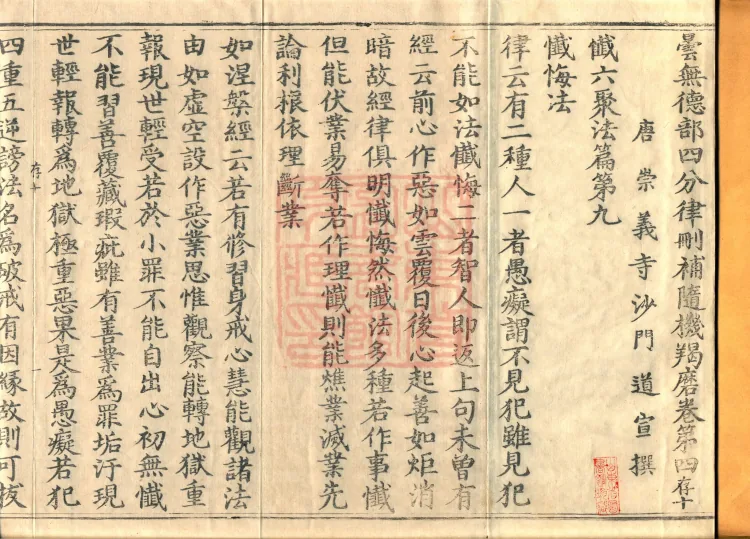 曇無德部四分律刪補隨機羯磨卷第四 存十
唐崇義寺沙門道宣撰
懺六聚法篇第九
懺悔法
律云有二種人一者愚癡謂不見犯雖見犯
不能如法懺悔二者智人即返上句未曾有
經云前心作惡如雲覆日後心起善如炬消
暗故經律俱明懺悔然懺法多種若作事懺
但能伏業易奪若作理懺則能燋業滅業先
論利根依理斷業
如涅槃經云若有修習身戒心慧能觀諸法
由如虛空設作惡業思惟觀察能轉地獄重
報現世輕受若於小罪不能自出心初無懺
不能習善覆藏瑕疵雖有善業為罪垢汙現
世輕報轉為地獄極重惡果是為愚癡若犯
存十 一
四重五逆謗法名為破戒有因緣故則可拔